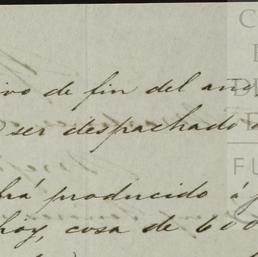 ivo de fin del año
ser despachado
brá producido á
hoy, cosa de 600